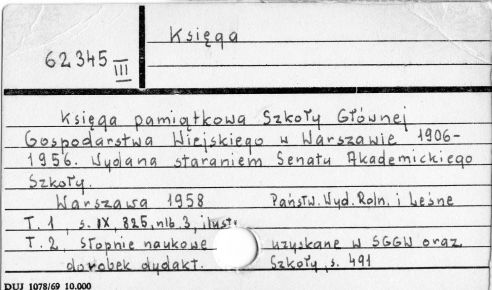 Księga
62345 III
Księga pamiątkowa Szkoły Głównej
Gospodarstwa Wiejskiego w Warszawie 1906-
1956. Wydana staraniem Senatu Akademickiego
Szkoły.
Warszawa 1958 Państw. Wyd. Roln. i Leśne
T. 1, s. IX, 825, nlb. 3, ilustr.
T. 2, Stopnie naukowe uzyskane w SGGW oraz
dorobek dydakt. Szkoły, s. 491
DUJ 1078/69 10.000